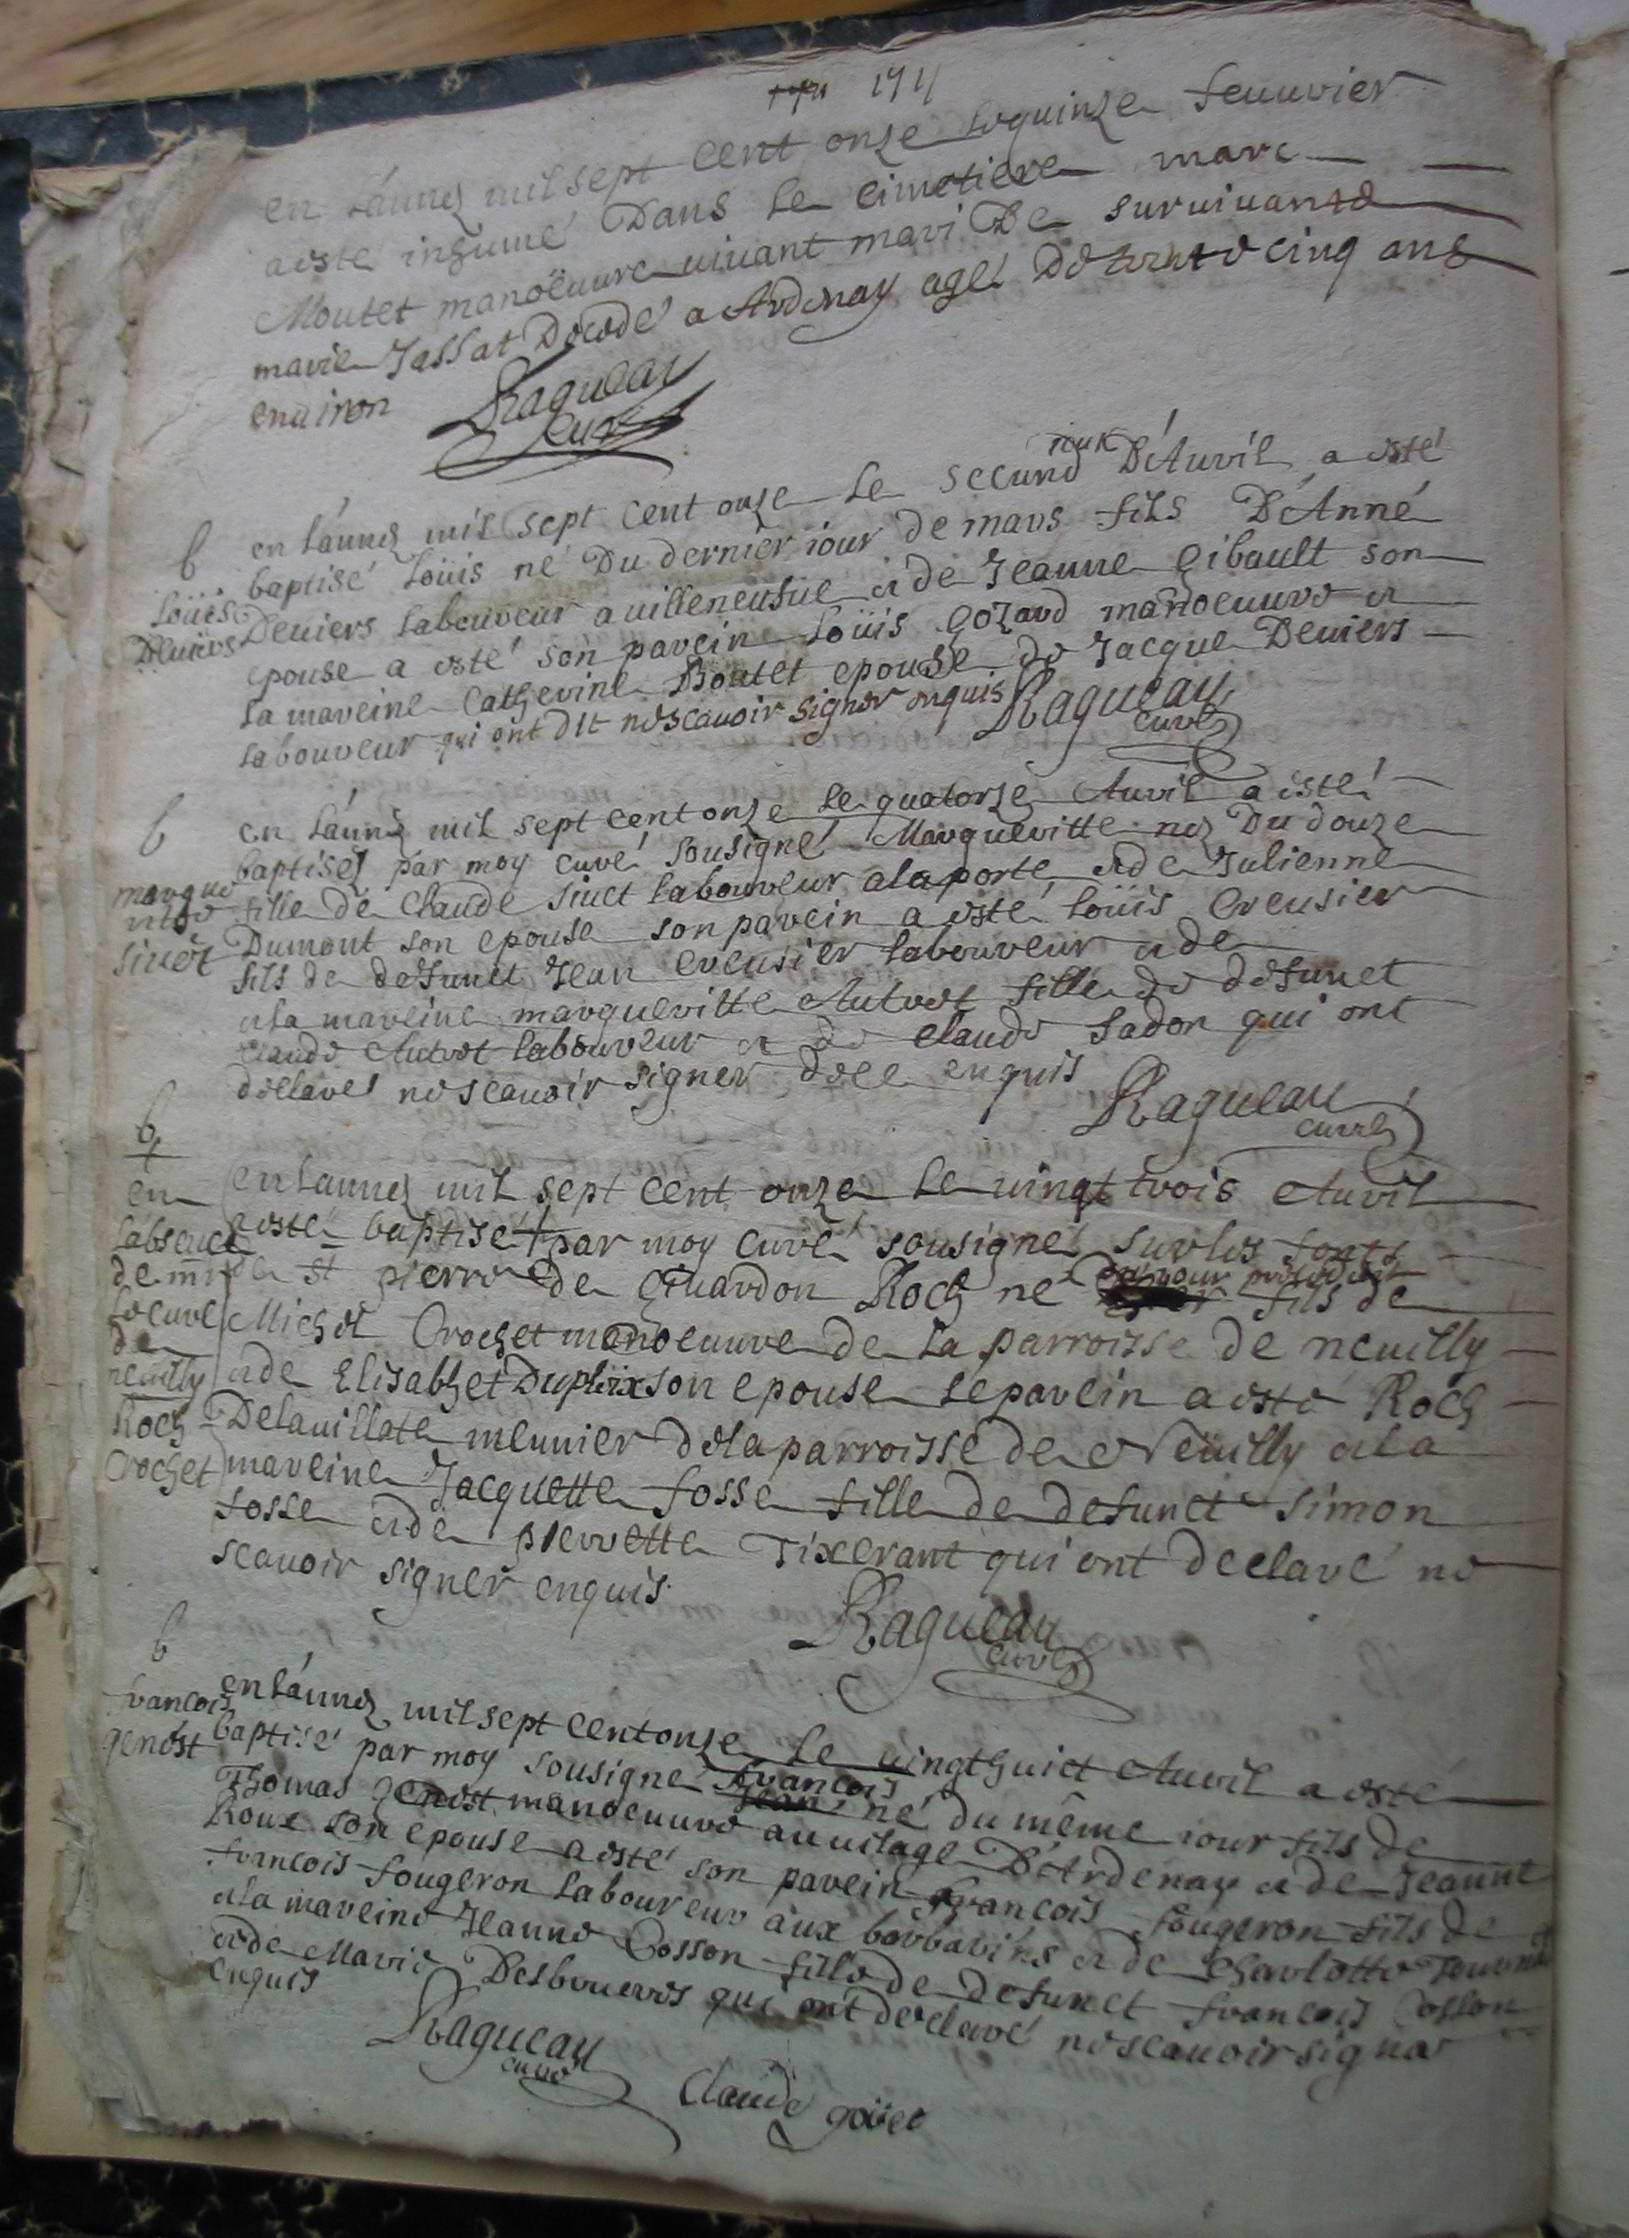 1711
en l'année mil sept cent onze le quinze feuurier
a esté inhumé Dans le cimetiere marc
Moutet manoeuure uiuant mari De suruiuante
marie Jassat Decedé a Ardenay agé De trente cinq ans
enuiron
Ragueau
curé
b
en l'année mil sept cent onze le second iour D'Auril a esté
baptisé Loüis né Du dernier iour de mars fils D'Anné
Loüis
Deuiers laboureur a uilleneufue et de Jeanne Gibault son
Deuiers
epouse a esté son parein Loüis Gozard manoeuure et
la mareine Catherine Boutet epouse de Jacque Deuiers
laboureur qui ont dit ne scauoir signer enquis
Ragueau
curé
b
en l'année mil sept cent onze le quatorze Auril a esté
baptisé par moy curé sousigné Marqueritte née Du douze
marque
ritte
Siuet
fille de Claude Siuet laboureur a la porte et de Julienne
Dumont son epouse son parein a esté Loüis Creusier
fils de defunct Jean Creusier laboureur et de
et la mareine margueritte Autret fille de defunct
Claude Autret laboureur et de claude Sadon qui ont
declaré ne scauoir signer de ce enquis
Ragueau
curé
b
en l'année mil sept cent onze le uingt trois Auril
a esté baptisé par moy curé sousigné sur les fonts
de St pierre de Giuardon Roch né du iour precedent fils de
Michel Crochet manoeuure de la parroisse de neuilly
et de Elisabhet Dupleix son epouse le parein a esté Roch
Delauillate meunier de la parroisse de Neüilly et la
mareine Jacquette fosse fille de defunct Simon
fosse et de pierrette Tixerant qui ont declaré ne
scauoir signer enquis
en
l'absence
de mr
le curé
de
neuilly
Roch
Crochet
Ragueau
curé
b
francois
genest
en l'année mil sept cent onze le uingt huict Auril a esté
baptisé par moy sousigné francois Jean né du même iour fils de
Thomas genest manoeuure au uilage D'Ardenay et de Jeanne
Roux son epouse a esté son parein francois fougeron fils de
francois fougeron laboureur aux barbarins et de Charlotte
et la mareine Jeanne Cosson fille de defunct francois Cosson
et de Marie Desbruerres qui ont declaré ne scauoir signer
enquis
Ragueau
curé
Claude goüet